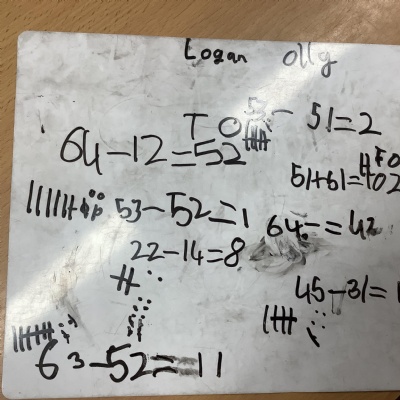 Logan olly
T O
- 51=2
64-12=52
51+61=
53-52=1
64-=42
22-14=8
45-31=1
63-52=11